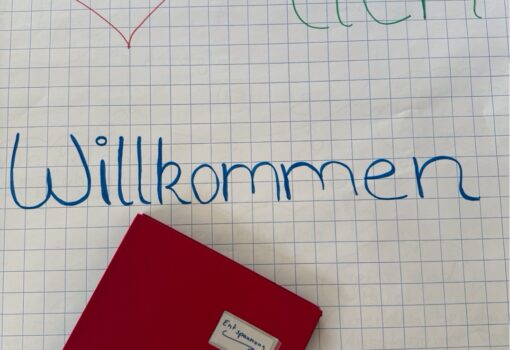 Willkommen
Entspannung